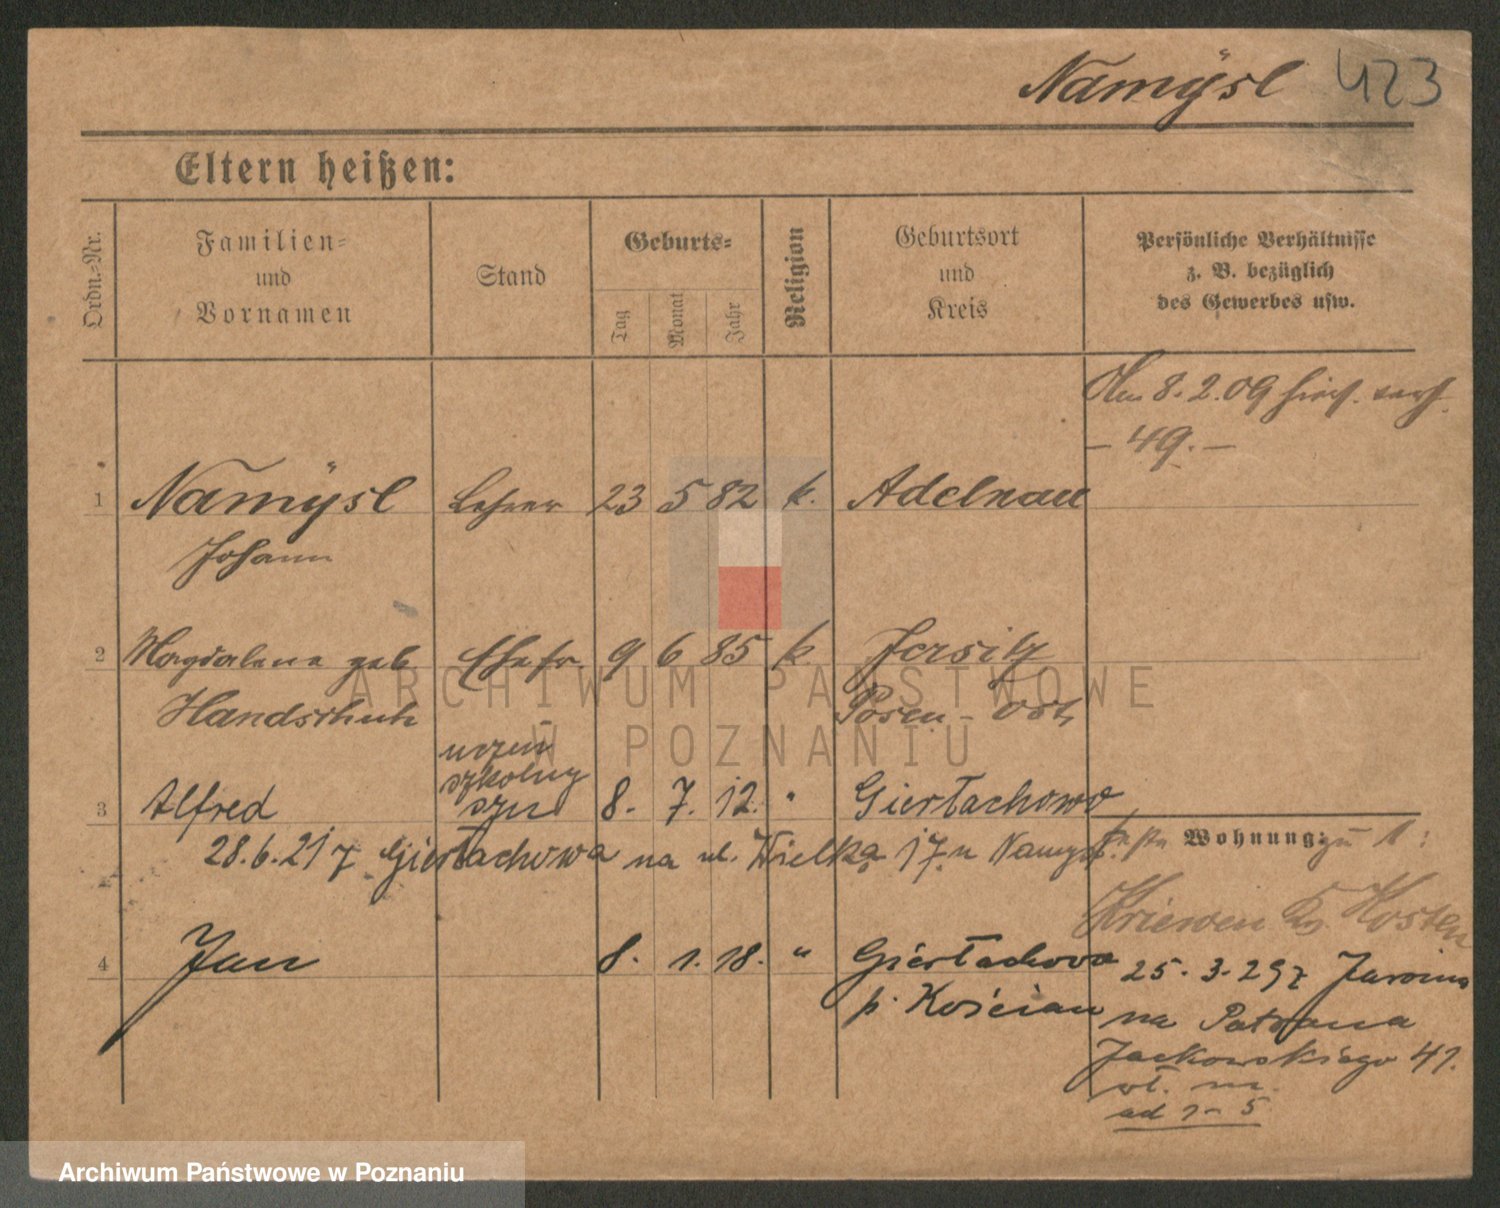 Namÿsl 423
Eltern heißen:
Ordn.-Nr.
Familien-
und
Vornamen
Stand
Geburts-
Tag
Monat
Jahr
Religion
Geburtsort
und
Kreis
Persönliche Verhältnisse
z. B. bezüglich
des Gewerbes usw.
8.2.09
- 49. -
1 Namÿsl Lehrer 23 5 82 k. Adelnau
Johann
2 Magdalena geb Ehefr. 9 6 85 k. Jersitz
Handschuh Posen - Ost
uczeń
szkolny
3 Alfred syn 8. 7. 12. " Giertachowo
28.6.21 z Giertachowa na ul. Wielka 17 u Namysł.
Wohnung: zu 1:
Kriewen Kr. Kosten
4 Jan 8. 1. 18. " Giertachowo
p. Kościan
25.3.29 z Jarocina
na Patrona
Jackowskiego 41.
wł. m.
ad 1-5
ARCHIWUM PAŃSTWOWE
W POZNANIU
Archiwum Państwowe w Poznaniu